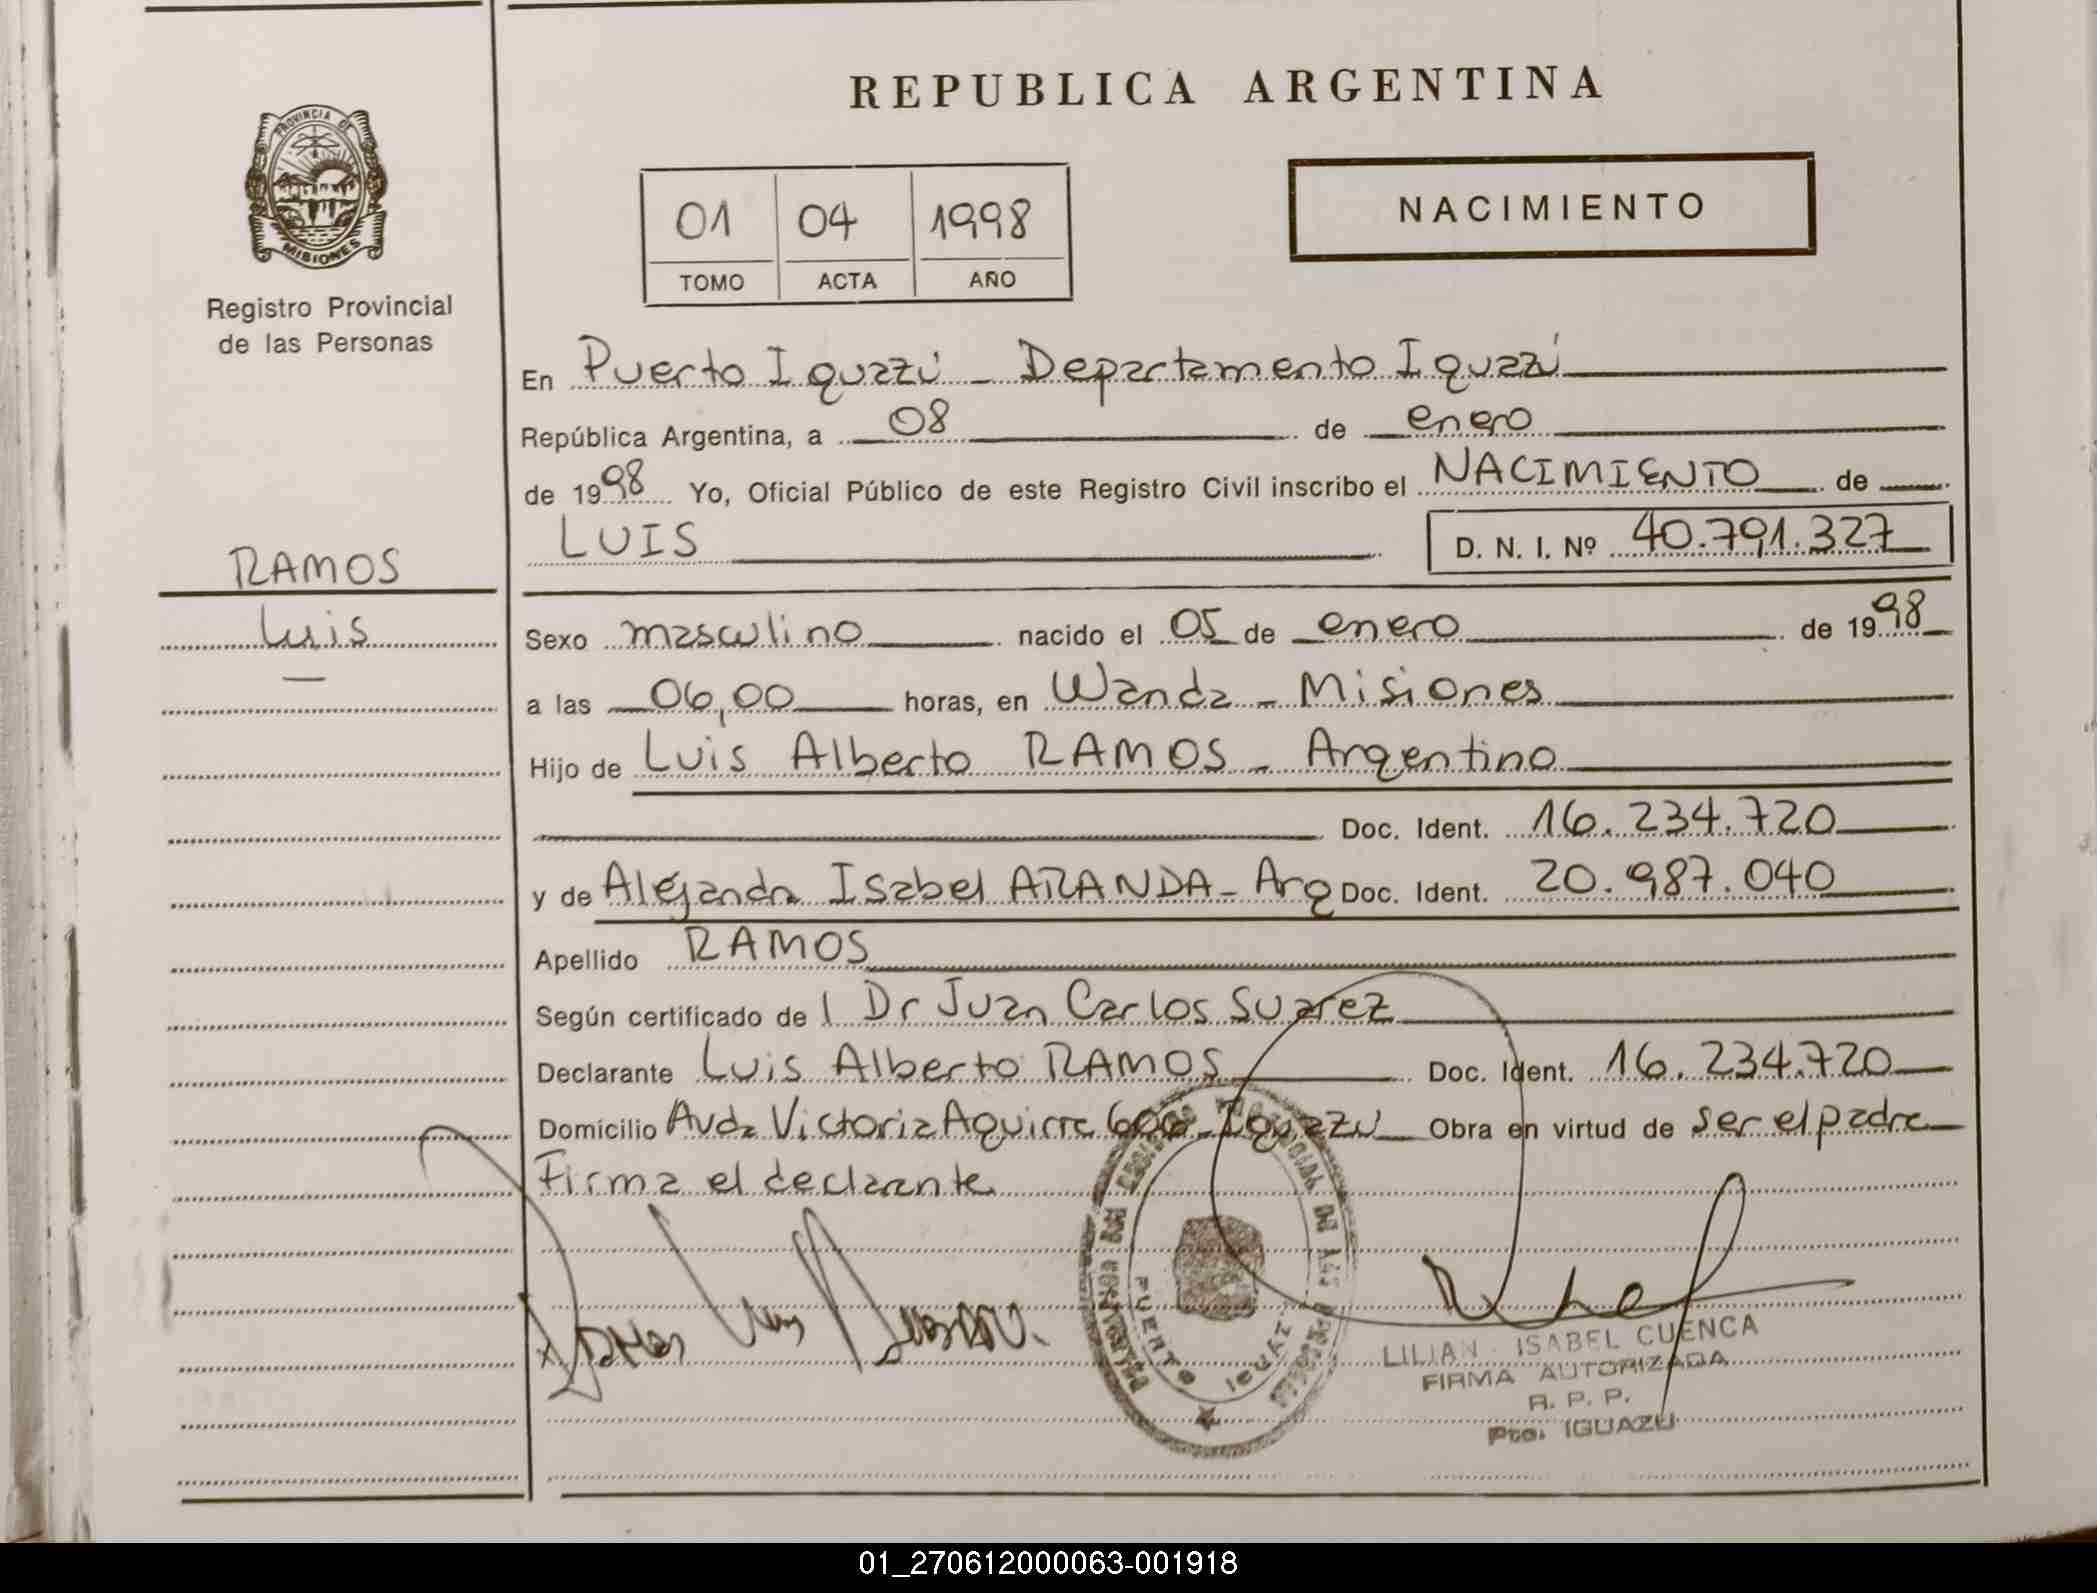 REPUBLICA ARGENTINA
PROVINCIA DE
MISIONES
Registro Provincial
de las Personas
01 04 1998
TOMO ACTA AÑO
NACIMIENTO
En Puerto Iguazú - Departamento Iguazú
República Argentina, a 08 de enero
de 1998 Yo, Oficial Público de este Registro Civil inscribo el NACIMIENTO de
LUIS D. N. I. Nº 40.791.327
RAMOS
Luis
Sexo masculino nacido el 05 de enero de 1998
a las 06,00 horas, en Wanda - Misiones
Hijo de Luis Alberto RAMOS - Argentino
Doc. Ident. 16.234.720
y de Alejandra Isabel ARANDA - Arg Doc. Ident. 20.987.040
Apellido RAMOS
Según certificado de l Dr Juan Carlos Suarez
Declarante Luis Alberto RAMOS Doc. Ident. 16.234.720
Domicilio Avda Victoria Aguirre 600 - Iguazú Obra en virtud de ser el padre
Firma el declarante
PUERTO IGUAZU
LILIAN ISABEL CUENCA
FIRMA AUTORIZADA
R. P. P.
Pto. IGUAZU
01_270612000063-001918